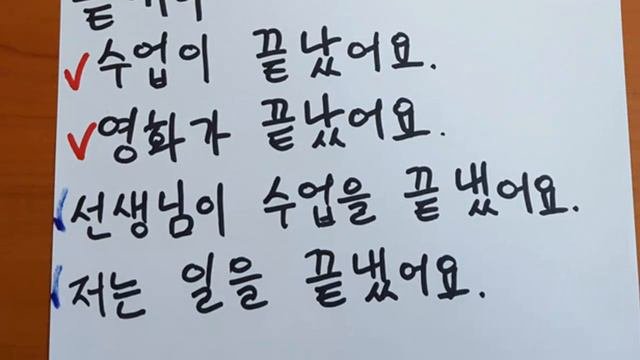 수업이 끝났어요.
영화가 끝났어요.
선생님이 수업을 끝냈어요.
저는 일을 끝냈어요.